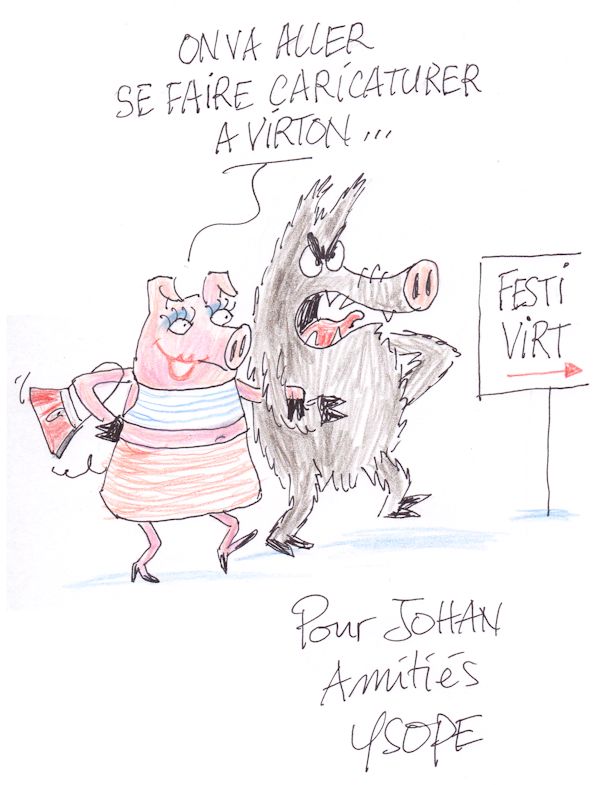 ON VA ALLER
SE FAIRE CARICATURER
A VIRTON...
FESTI
VIRT
Pour JOHAN
Amitiés
YSOPE